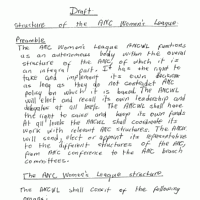 Draft
Structure of the ANC Women's League
Preamble
The ANC Women's League ANCWL functions
as an autonomous body within the overall
structure of the ANC, of which it is
an integral part. It has the right to
take and implement its own decisions
as long as they do not contradict ANC
policy on which it is based. The ANCWL
will elect and recall its own leadership and
delegates at all levels. The ANCWL shall have
the right to raise and keep its own funds
At all levels the ANCWL shall coordinate its
work with relevant ANC structures. The ANCWL
will send, elect or appoint its representatives
to the different structures of the ANC,
from ANC conference to the ANC branch
committees.
The ANC Women's League structure
The ANCWL shall consist of the following
organs: